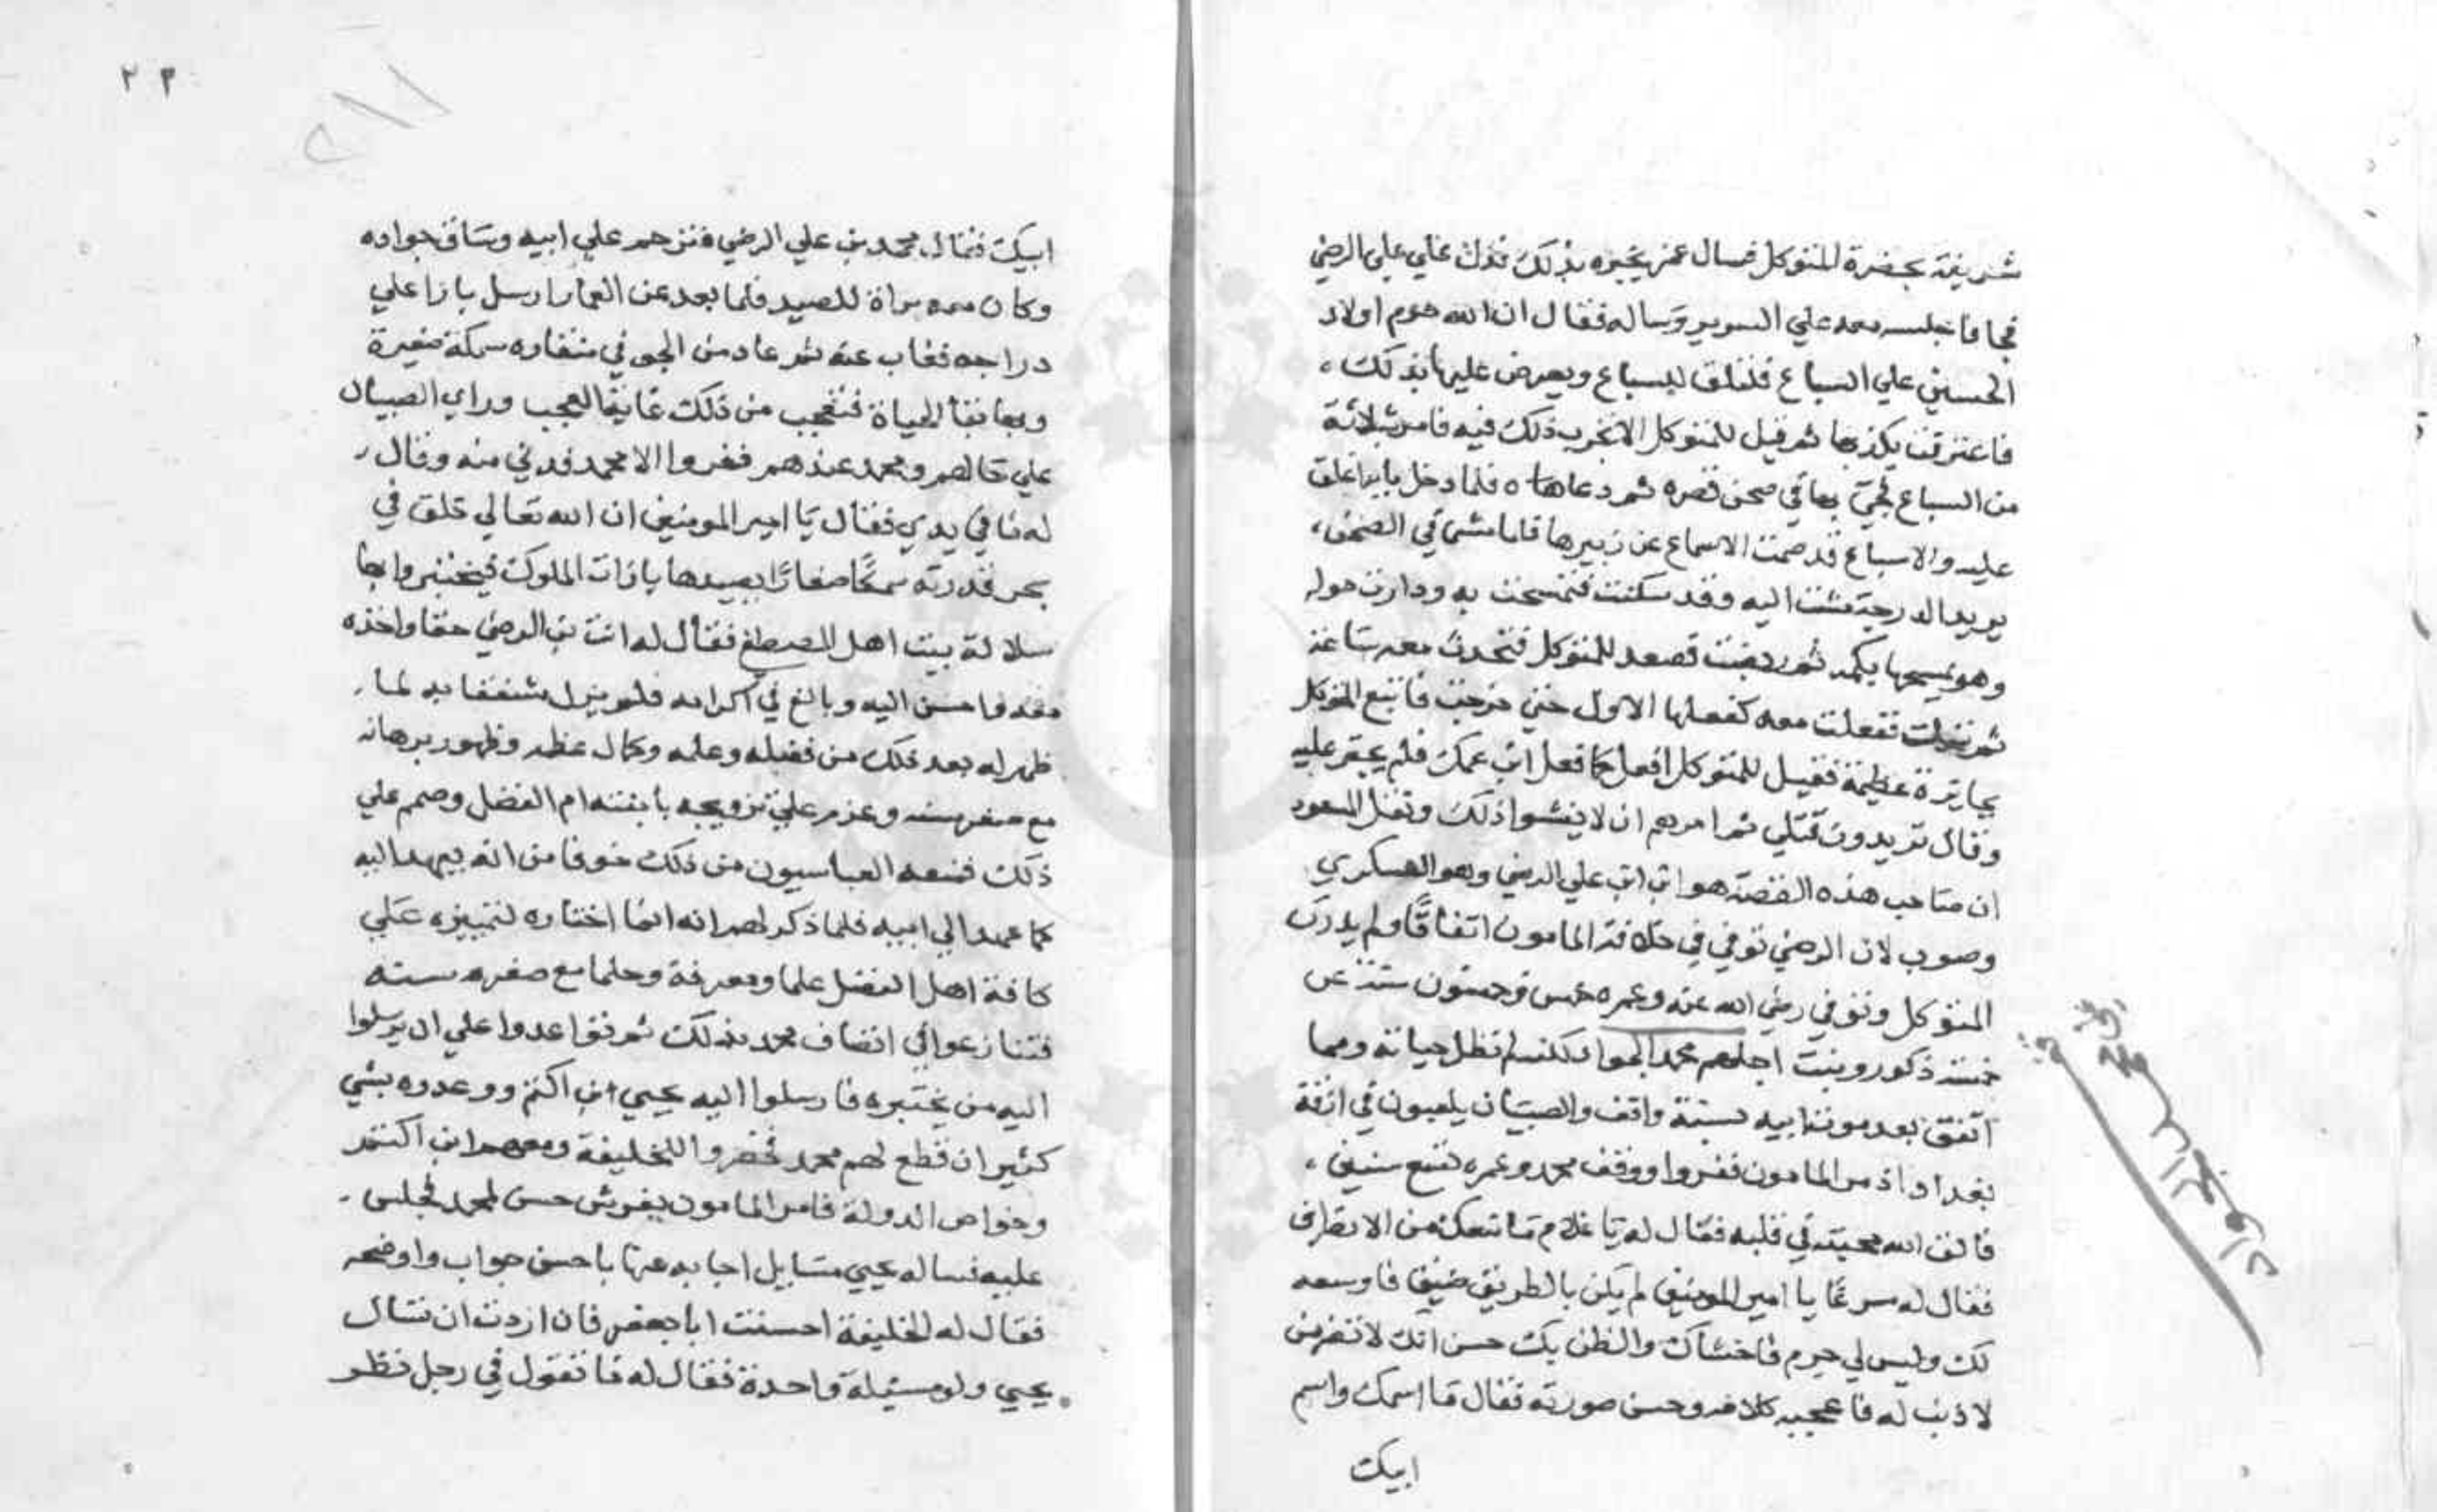 شريفة بحضرة المتوكل فسال عمن يخبره بذلك فدل علي علي الرضي
فجا فاجلسه معه علي السرير وساله فقال ان الله حرم اولاد
الحسين علي السباع فلتلق للسباع ويعرض عليها بذلك
فاعترفت بكذبها ثم قيل للمتوكل الا تجرب ذلك فيه فامر بثلاثة
من السباع فجيّ بها في صحن قصره ثم دعاه فلما دخل بابه اغلق
عليه والاسباع قد صمت الاسماع عن زبيرها فلما مشي في الصحن
يريد الدرجة مشت اليه وقد سكنت فتمسحت به ودارت حوله
وهو يمسحها بكمه ثم ربضت فصعد للمتوكل فتحدث معه ساعة
ثم نزلت ففعلت معه كفعلها الاول حتي خرجت فاتبع المتوكل
بجايزة عظيمة فقيل للمتوكل افعل كما فعل ابن عمك فلم يجسر عليه
وقال تريدون قتلي ثم امرهم ان لا يفشوا ذلك ونقل المسعود
ان صاحب هذه القصة هو ابن ابن علي الرضي وهو العسكري
وصوب لان الرضي توفي في خلافة المامون اتفاقًا ولم يدرك
المتوكل وتوفي رضي الله عنه وعمره خمس وخمسون سنة عن
خمسة ذكور وبنت اجلهم محمد الجواد لكنه لم تطل حياته ومما
اتفق بعد موت ابيه بسنة واقف والصبيان يلعبون في ازقة
بغداد اذ مر المامون ففروا ووقف محمد وعمره تسع سنين
فالقي الله محبته في قلبه فقال له يا غلام ما منعك من الانصراف
فقال له مسرعًا يا امير المومنين لم يكن بالطريق ضيق فاوسعه
لك وليس لي جرم فاخشاك والظن بك حسن انك لا تضر من
لا ذنب له فاعجبه كلامه وحسن صورته فقال ما اسمك واسم
ابيك
محمد الجواد
٢٣
ابيك فقال محمد بن علي الرضي فترحم علي ابيه وساق جواده
وكان معه بزاة للصيد فلما بعد عن العمار ارسل بازا علي
دراجه فغاب عنه ثم عاد من الجو في منقاره سمكة صغيرة
وبها بقا الحياة فتعجب من ذلك غاية العجب وراي الصبيان
علي حالهم ومحمد عندهم ففروا الا محمد فدني منه وقال
له ما في يدي فقال يا امير المومنين ان الله تعالي خلق في
بحر قدرته سمكًا صغارًا يصيدها بازات الملوك فيختبروا بها
سلالة بيت اهل المصطفي فقال له انت بن الرضي حقا واخذه
معه فاحسن اليه وبالغ في اكرامه فلم يزل مشغفا به لما
ظهر له بعد ذلك من فضله وعلمه وكمال عظمه وظهور برهانه
مع صغر سنه وعزم علي تزويجه بابنته ام الفضل وصمم علي
ذلك فمنعه العباسيون من ذلك خوفا من انه يعهد اليه
كما عهد الي ابيه فلما ذكر لهم انه انما اختاره لتمييزه علي
كافة اهل الفضل علما ومعرفة وحلما مع صغره سنه
فتنازعوا في اتصاف محمد بذلك ثم تواعدوا علي ان يرسلوا
اليه من يختبره فارسلوا اليه يحيي ابن اكثم ووعدوه بشي
كثير ان قطع لهم محمد فحضروا للخليفة ومعهم ابن اكثم
وخواص الدولة فامر المامون بفرش حسن لمحمد فجلس
عليه فساله يحيي مسايل اجابه عنها باحسن جواب واوضحه
فقال له الخليفة احسنت ابا جعفر فان اردت ان تسال
يحيي ولو مسيلة واحدة فقال له ما تقول في رجل نظر